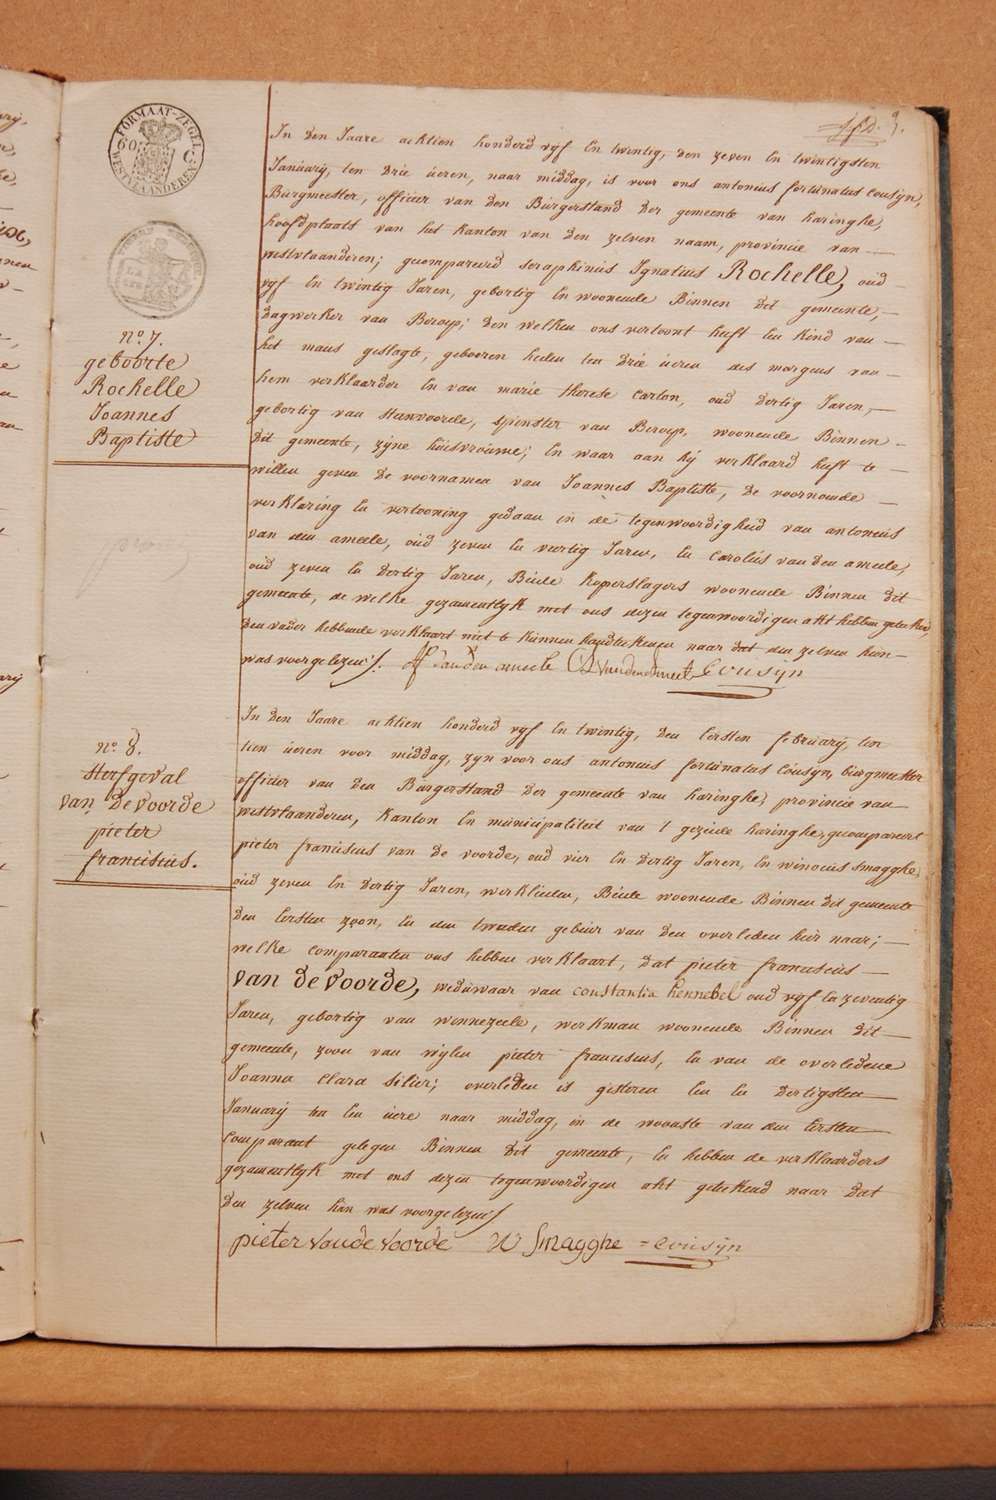 3.
FORMAAT-ZEGEL
60 C.
WESTVLAANDEREN
no. 7.
geboorte
Rochelle
Joannes
Baptiste
In den Jaare achtien honderd vyf en twintig, den zeven en twintigsten
Januarij, ten drie ueren, naar middag, is voor ons antonius fortunatus cousyn,
Burgmeester, officier van den Burgerstand der gemeente van haringhe,
hoofdplaats van het kanton van den zelven naam, provincie van
westvlaanderen; gecompareerd seraphinus Ignatius Rochelle, oud
vyf en twintig Jaren, gebortig en woonende Binnen dit gemeente,
dagwerker van Beroep; den welken ons vertoont heeft een kind van
het mans geslagte, gebooren heden ten drie ueren des morgens van
hem verklaarder en van marie therese carton, oud dertig Jaren,
gebortig van steenvoorde, spinster van Beroep, woonende Binnen
dit gemeente, zyne huisvrouwe; en waar aan hy verklaard heeft te
willen geven de voornamen van Joannes Baptiste, de voornoemde
verklaring en vertooning gedaan in de tegenwoordigheid van antonius
van den ameele, oud zeven en veertig Jaren, en carolus van den ameele,
oud zeven en dertig Jaren, Beide koperslagers woonende Binnen dit
gemeente, de welke gezamentlyk met ons dezen tegenwoordigen akt hebben geteekend,
den vader hebbende verklaart niet te kunnen handteekenen naar dat den zelven hun
was voorgelezen /.
van den ameele Vandenameele Cousijn
no. 8.
Sterfgeval
van de voorde
pieter
franciscus.
In den Jaare achtien honderd vyf en twintig, den eersten februarij, ten
tien ueren voor middag, zyn voor ons antonius fortunatus cousyn, burgmeester
officier van den Burgerstand der gemeente van haringhe, provincie van
westvlaanderen, kanton en municipaliteit van 't gezeide haringhe, gecompareert
pieter franciscus van de voorde, oud vier en dertig Jaren, en winocus smagghe,
oud zeven en dertig Jaren, werklieden, Beide woonende Binnen dit gemeente
den eersten zoon, en den tweeden gebuer van den overleden hier naar;
welke comparanten ons hebben verklaart, dat pieter franciscus
van de voorde, weduwaar van constantia hennebel oud vyf en zeventig
Jaren, gebortig van winnezeele, werkman woonende Binnen dit
gemeente, zoon van wylen pieter franciscus, en van de overledene
Joanna Clara silier; overleden is gisteren een en dertigsten
Januarij ten een uere naar middag, in de woonste van den eersten
comparant gelegen Binnen dit gemeente, en hebben de verklaarders
gezamentlyk met ons dezen tegenwoordigen akt geteekend naar dat
den zelven hun was voorgelezen /
pieter vande voorde W Smagghe = cousijn